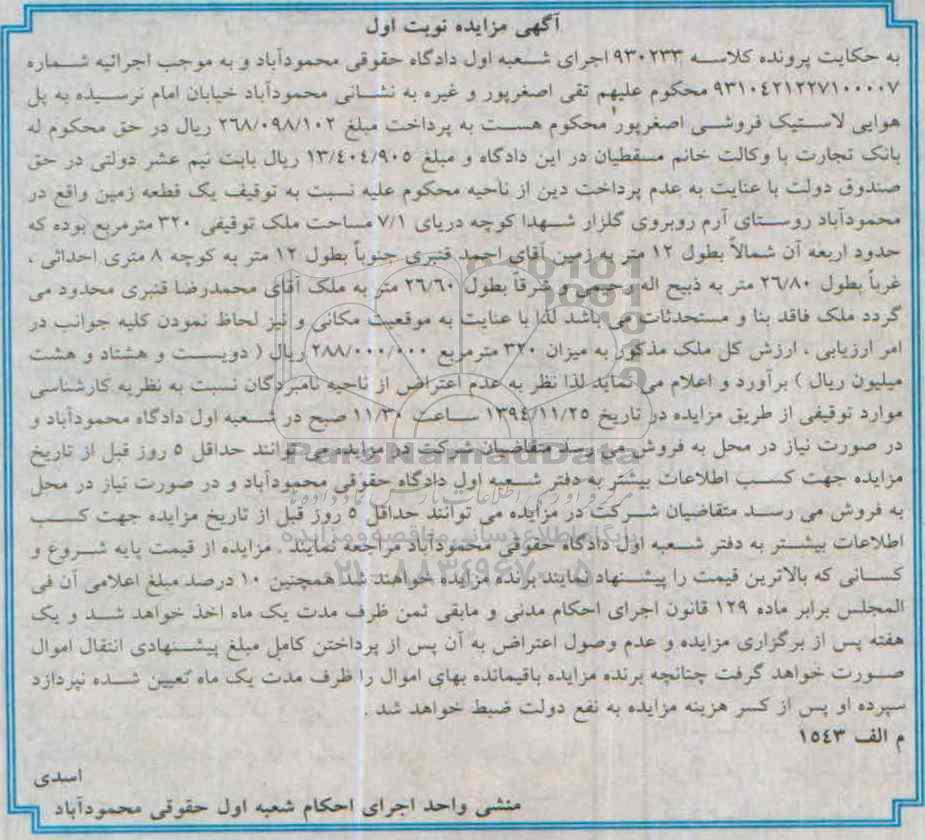 آگهی مزایده نوبت اول
به حکایت پرونده کلاسه ۹۳۰۲۳۳ اجرای شعبه اول دادگاه حقوقی محمودآباد و به موجب اجرائیه شماره
۹۳۱۰۴۲۱۲۲۷۱۰۰۰۰۷ محکوم علیهم تقی اصغرپور و غیره به نشانی محمودآباد خیابان امام نرسیده به پل
هوایی لاستیک فروشی اصغرپور محکوم هست به پرداخت مبلغ ۲۶۸/۰۹۸/۱۰۲ ریال در حق محکوم له
بانک تجارت با وکالت خانم مسقطیان در این دادگاه و مبلغ ۱۳/۴۰۴/۹۰۵ ریال بابت نیم عشر دولتی در حق
صندوق دولت با عنایت به عدم پرداخت دین از ناحیه محکوم علیه نسبت به توقیف یک قطعه زمین واقع در
محمودآباد روستای آرم روبروی گلزار شهدا کوچه دریای ۷/۱ مساحت ملک توقیفی ۳۲۰ مترمربع بوده که
حدود اربعه آن شمالاً بطول ۱۲ متر به زمین آقای احمد قنبری جنوباً بطول ۱۲ متر به کوچه ۸ متری احداثی ،
غرباً بطول ۲۶/۸۰ متر به ذبیح اله رحیمی و شرقاً بطول ۲۶/۶۰ متر به ملک آقای محمدرضا قنبری محدود می
گردد ملک فاقد بنا و مستحدثات می باشد لذا با عنایت به موقعیت مکانی و نیز لحاظ نمودن کلیه جوانب در
امر ارزیابی ، ارزش کل ملک مذکور به میزان ۳۲۰ مترمربع ۲۸۸/۰۰۰/۰۰۰ ریال ( دویست و هشتاد و هشت
میلیون ریال ) برآورد و اعلام می نماید لذا نظر به عدم اعتراض از ناحیه نامبردگان نسبت به نظریه کارشناسی
موارد توقیفی از طریق مزایده در تاریخ ۱۳۹٤/۱۱/۲۵ ساعت ۱۱/۳۰ صبح در شعبه اول دادگاه محمودآباد و
در صورت نیاز در محل به فروش می رسد متقاضیان شرکت در مزایده می توانند حداقل ۵ روز قبل از تاریخ
مزایده جهت کسب اطلاعات بیشتر به دفتر شعبه اول دادگاه حقوقی محمودآباد و در صورت نیاز در محل
به فروش می رسد متقاضیان شرکت در مزایده می توانند حداقل ۵ روز قبل از تاریخ مزایده جهت کسب
اطلاعات بیشتر به دفتر شعبه اول دادگاه حقوقی محمودآباد مراجعه نمایند . مزایده از قیمت پایه شروع و
کسانی که بالاترین قیمت را پیشنهاد نمایند برنده مزایده خواهند شد همچنین ۱۰ درصد مبلغ اعلامی آن فی
المجلس برابر ماده ۱۲۹ قانون اجرای احکام مدنی و مابقی ثمن ظرف مدت یک ماه اخذ خواهد شد و یک
هفته پس از برگزاری مزایده و عدم وصول اعتراض به آن پس از پرداختن کامل مبلغ پیشنهادی انتقال اموال
صورت خواهد گرفت چنانچه برنده مزایده باقیمانده بهای اموال را ظرف مدت یک ماه تعیین شده نپردازد
سپرده او پس از کسر هزینه مزایده به نفع دولت ضبط خواهد شد .
م الف ۱۵٤۳
اسدی
منشی واحد اجرای احکام شعبه اول حقوقی محمودآباد
ParsNamadData
پایگاه اطلاع رسانی مناقصه و مزایده